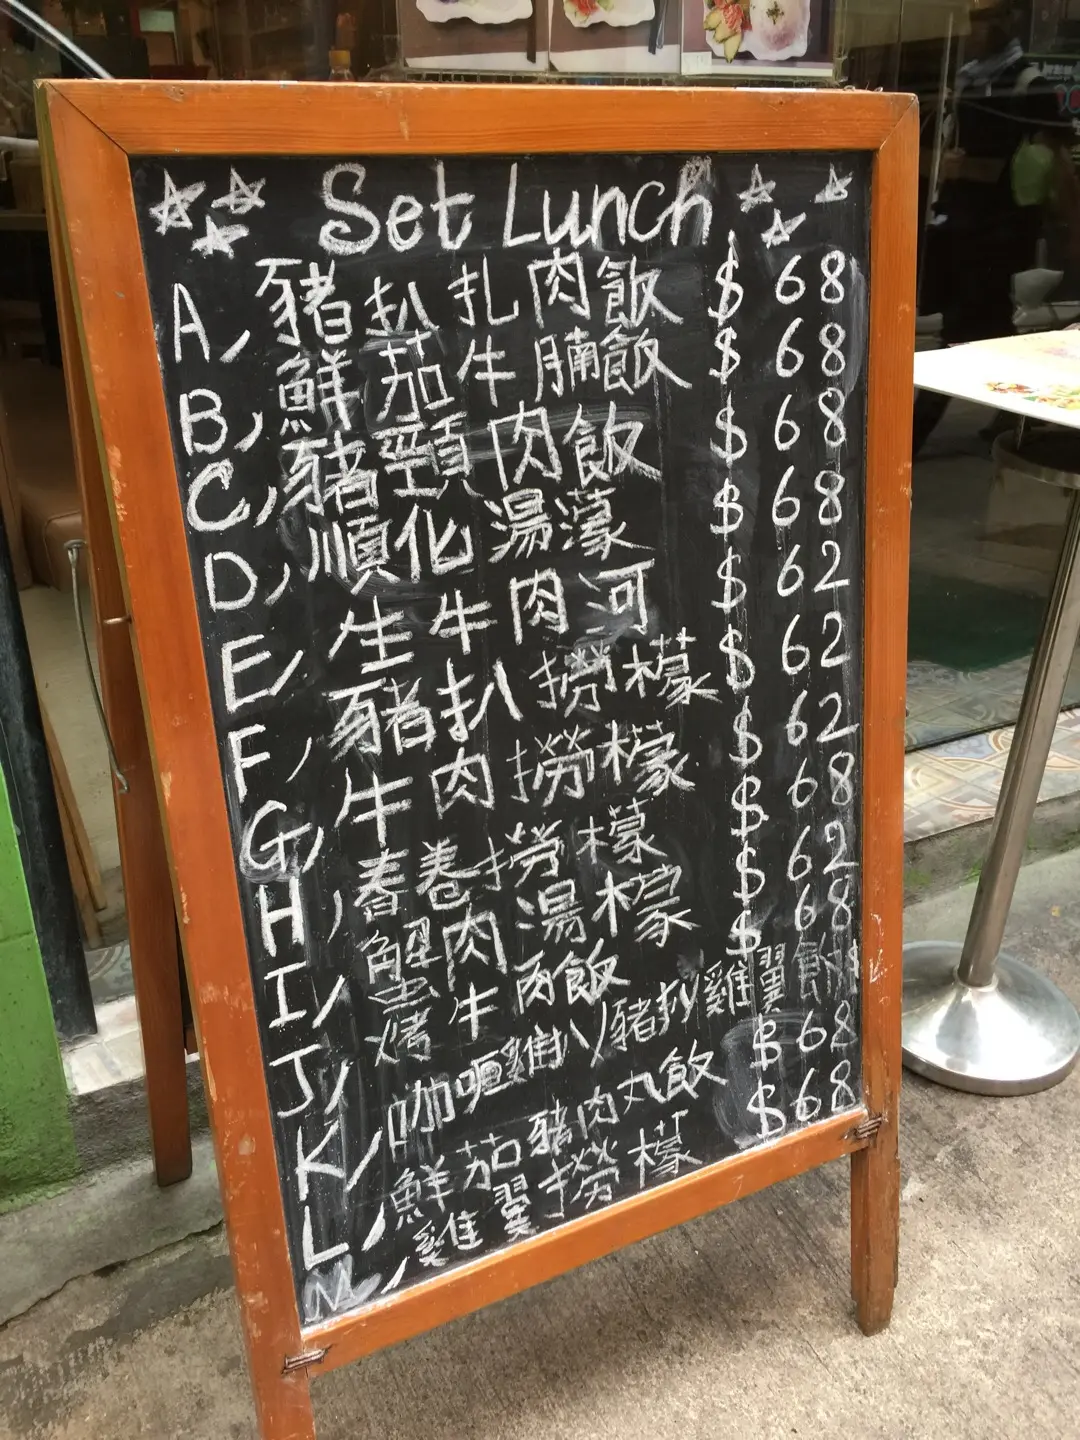 Set Lunch
A, 豬扒扎肉飯 $68
B, 鮮茄牛腩飯 $68
C, 豬頸肉飯 $68
D, 順化湯濛 $68
E, 生牛肉河 $62
F, 豬扒撈檬 $62
G, 牛肉撈檬 $62
H, 春卷撈檬 $68
I, 蟹肉湯檬 $62
J, 烤牛肉飯 $68
K, 咖喱雞扒/豬扒/雞翼飯 $
L, 鮮茄豬肉丸飯 $68
M, 雞翼撈檬 $68